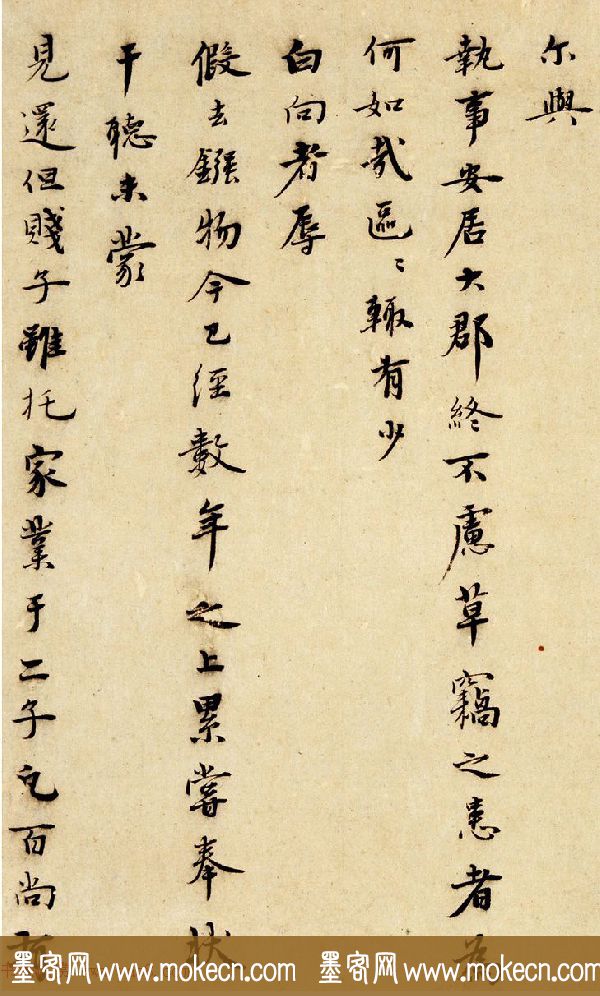 尓與
執事安居大郡終不慮草竊之患者為
何如哉區〻輙有少
白向者辱
假去鏹物今已經數年之上累嘗奉狀
干聴未蒙
見還但賤子雖托家業于二子凢百尚
墨客网 www.mokecn.com 墨客网 www.mokecn.com